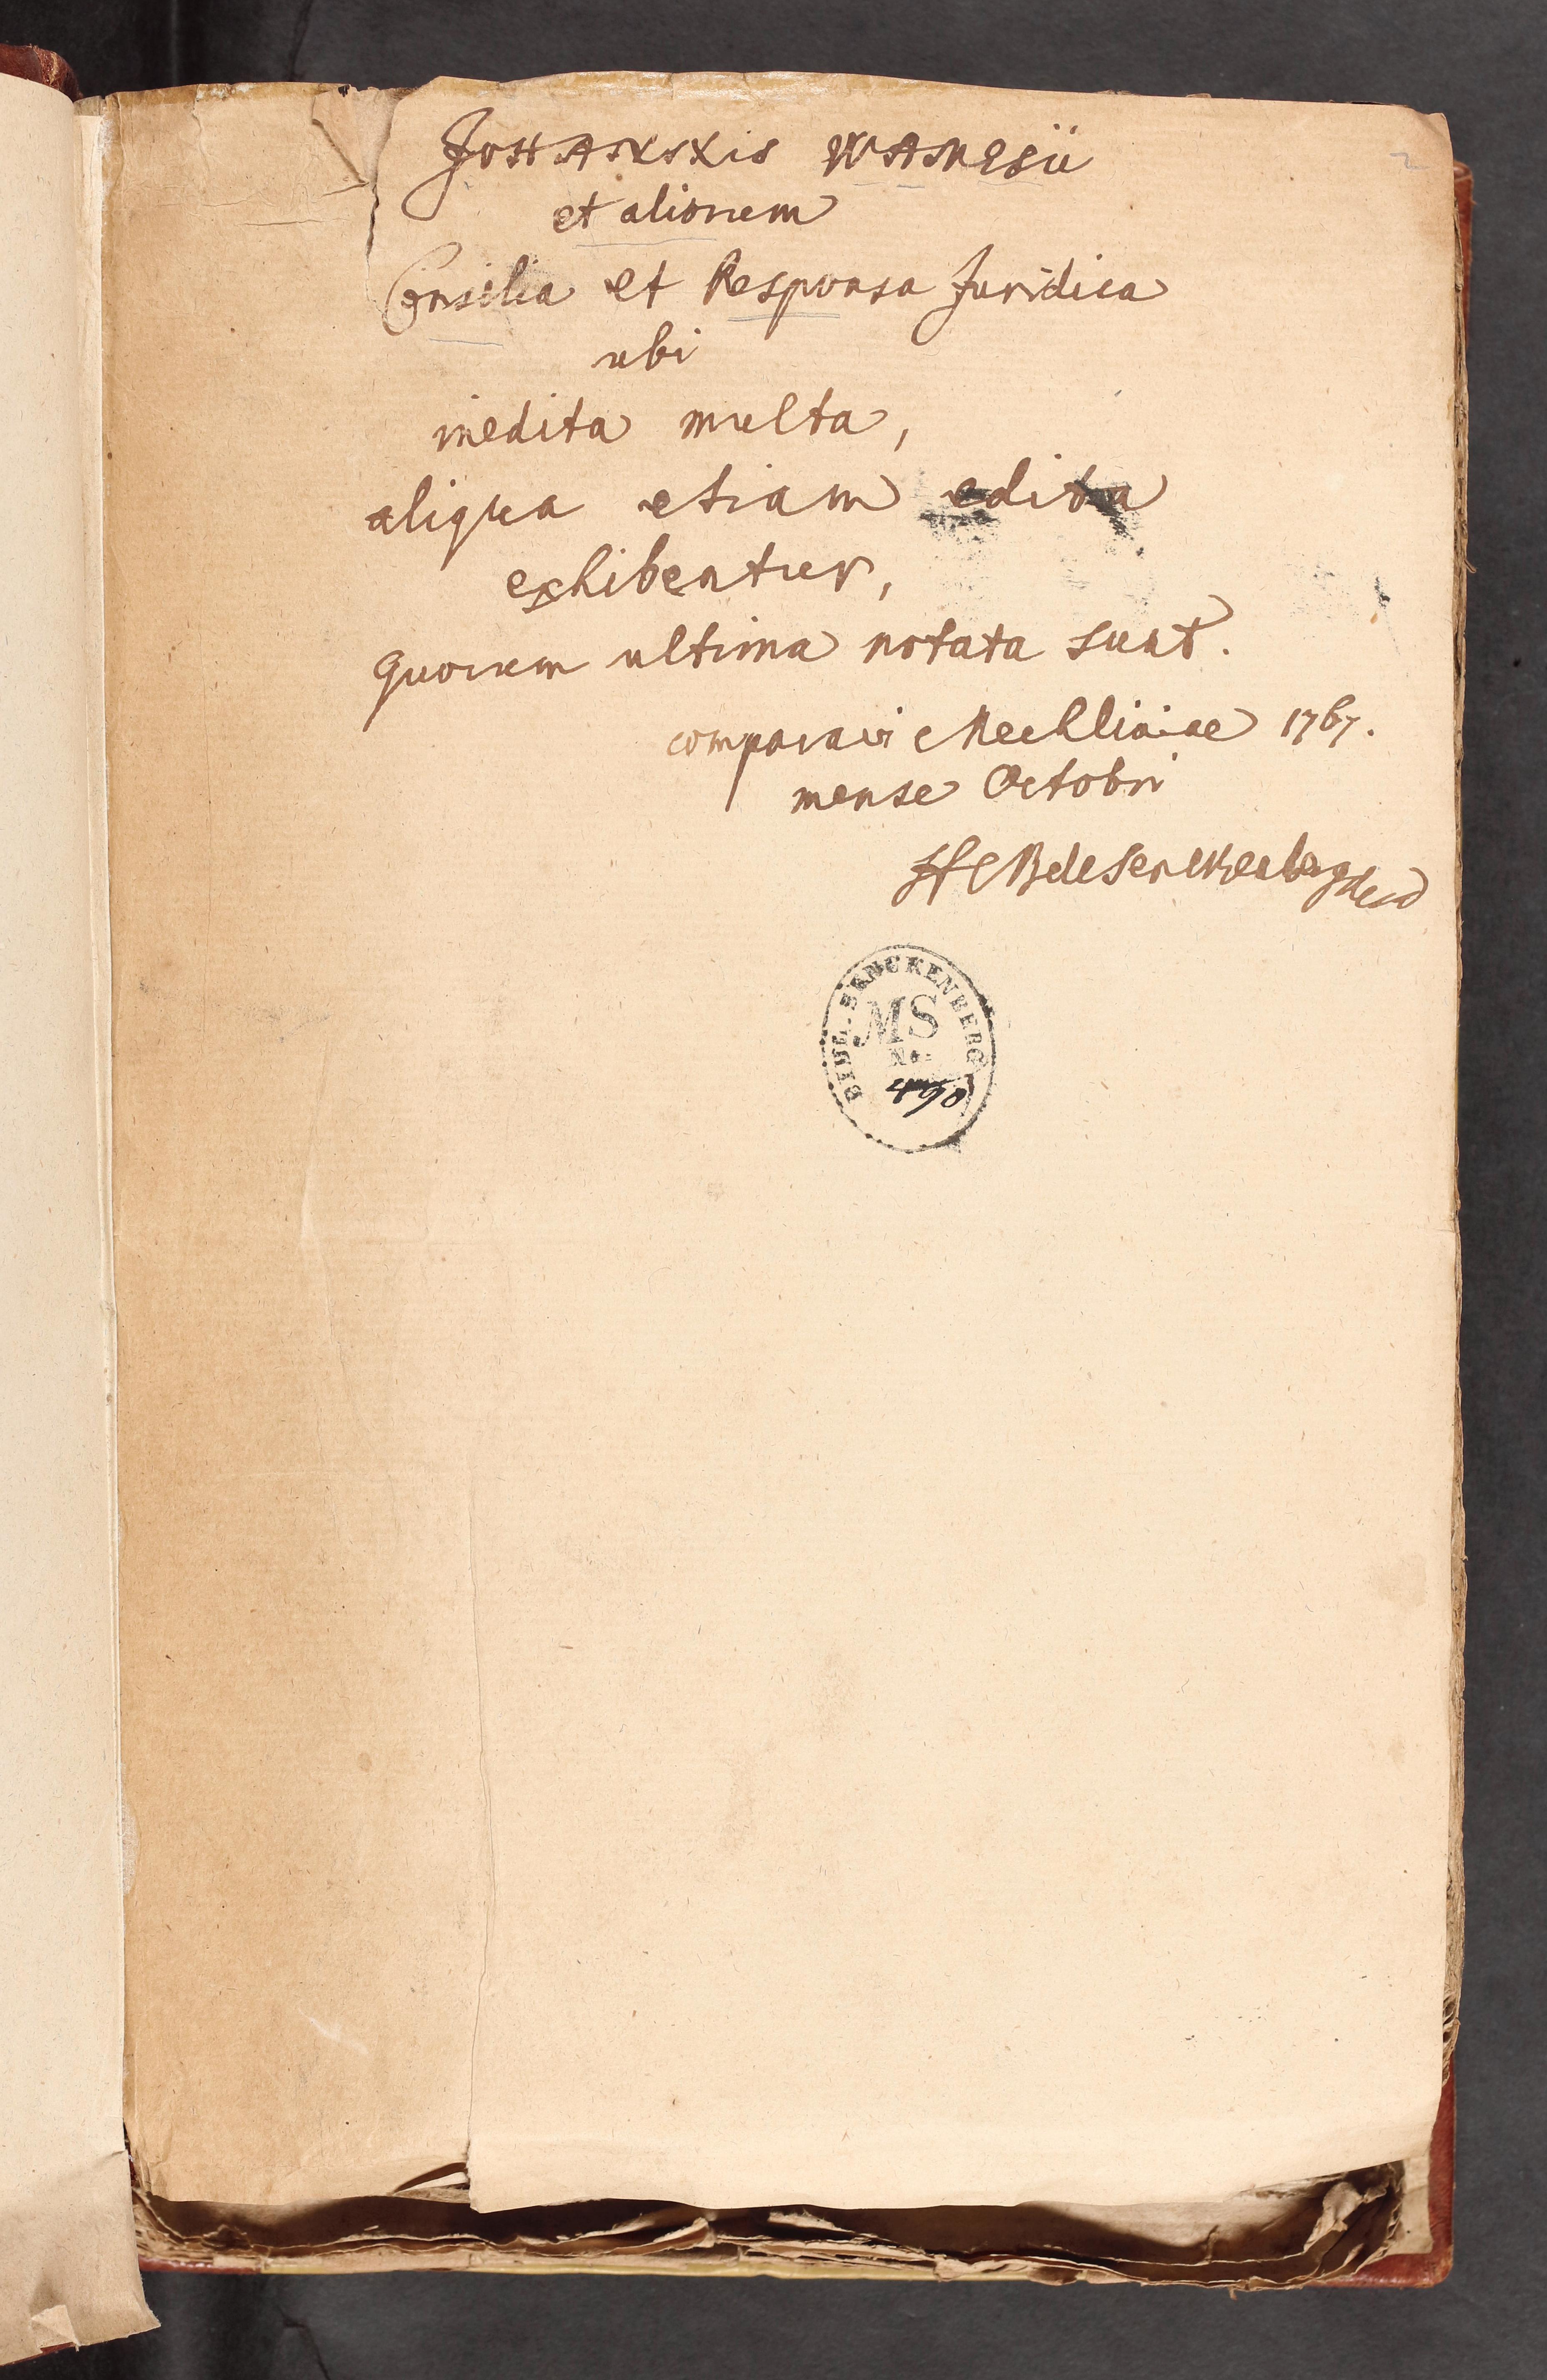 JOHANNIS WAMESII
et aliorum
Consilia et Responsa Juridica
ubi
inedita multa,
aliqua etiam edita
exhibentur,
quorum ultima notata sunt.
comparavi Mechliniae 1767.
mense Octobri
HCB de Senckenberg
BIBL. SENCKENBERG
MS
No.
490
2